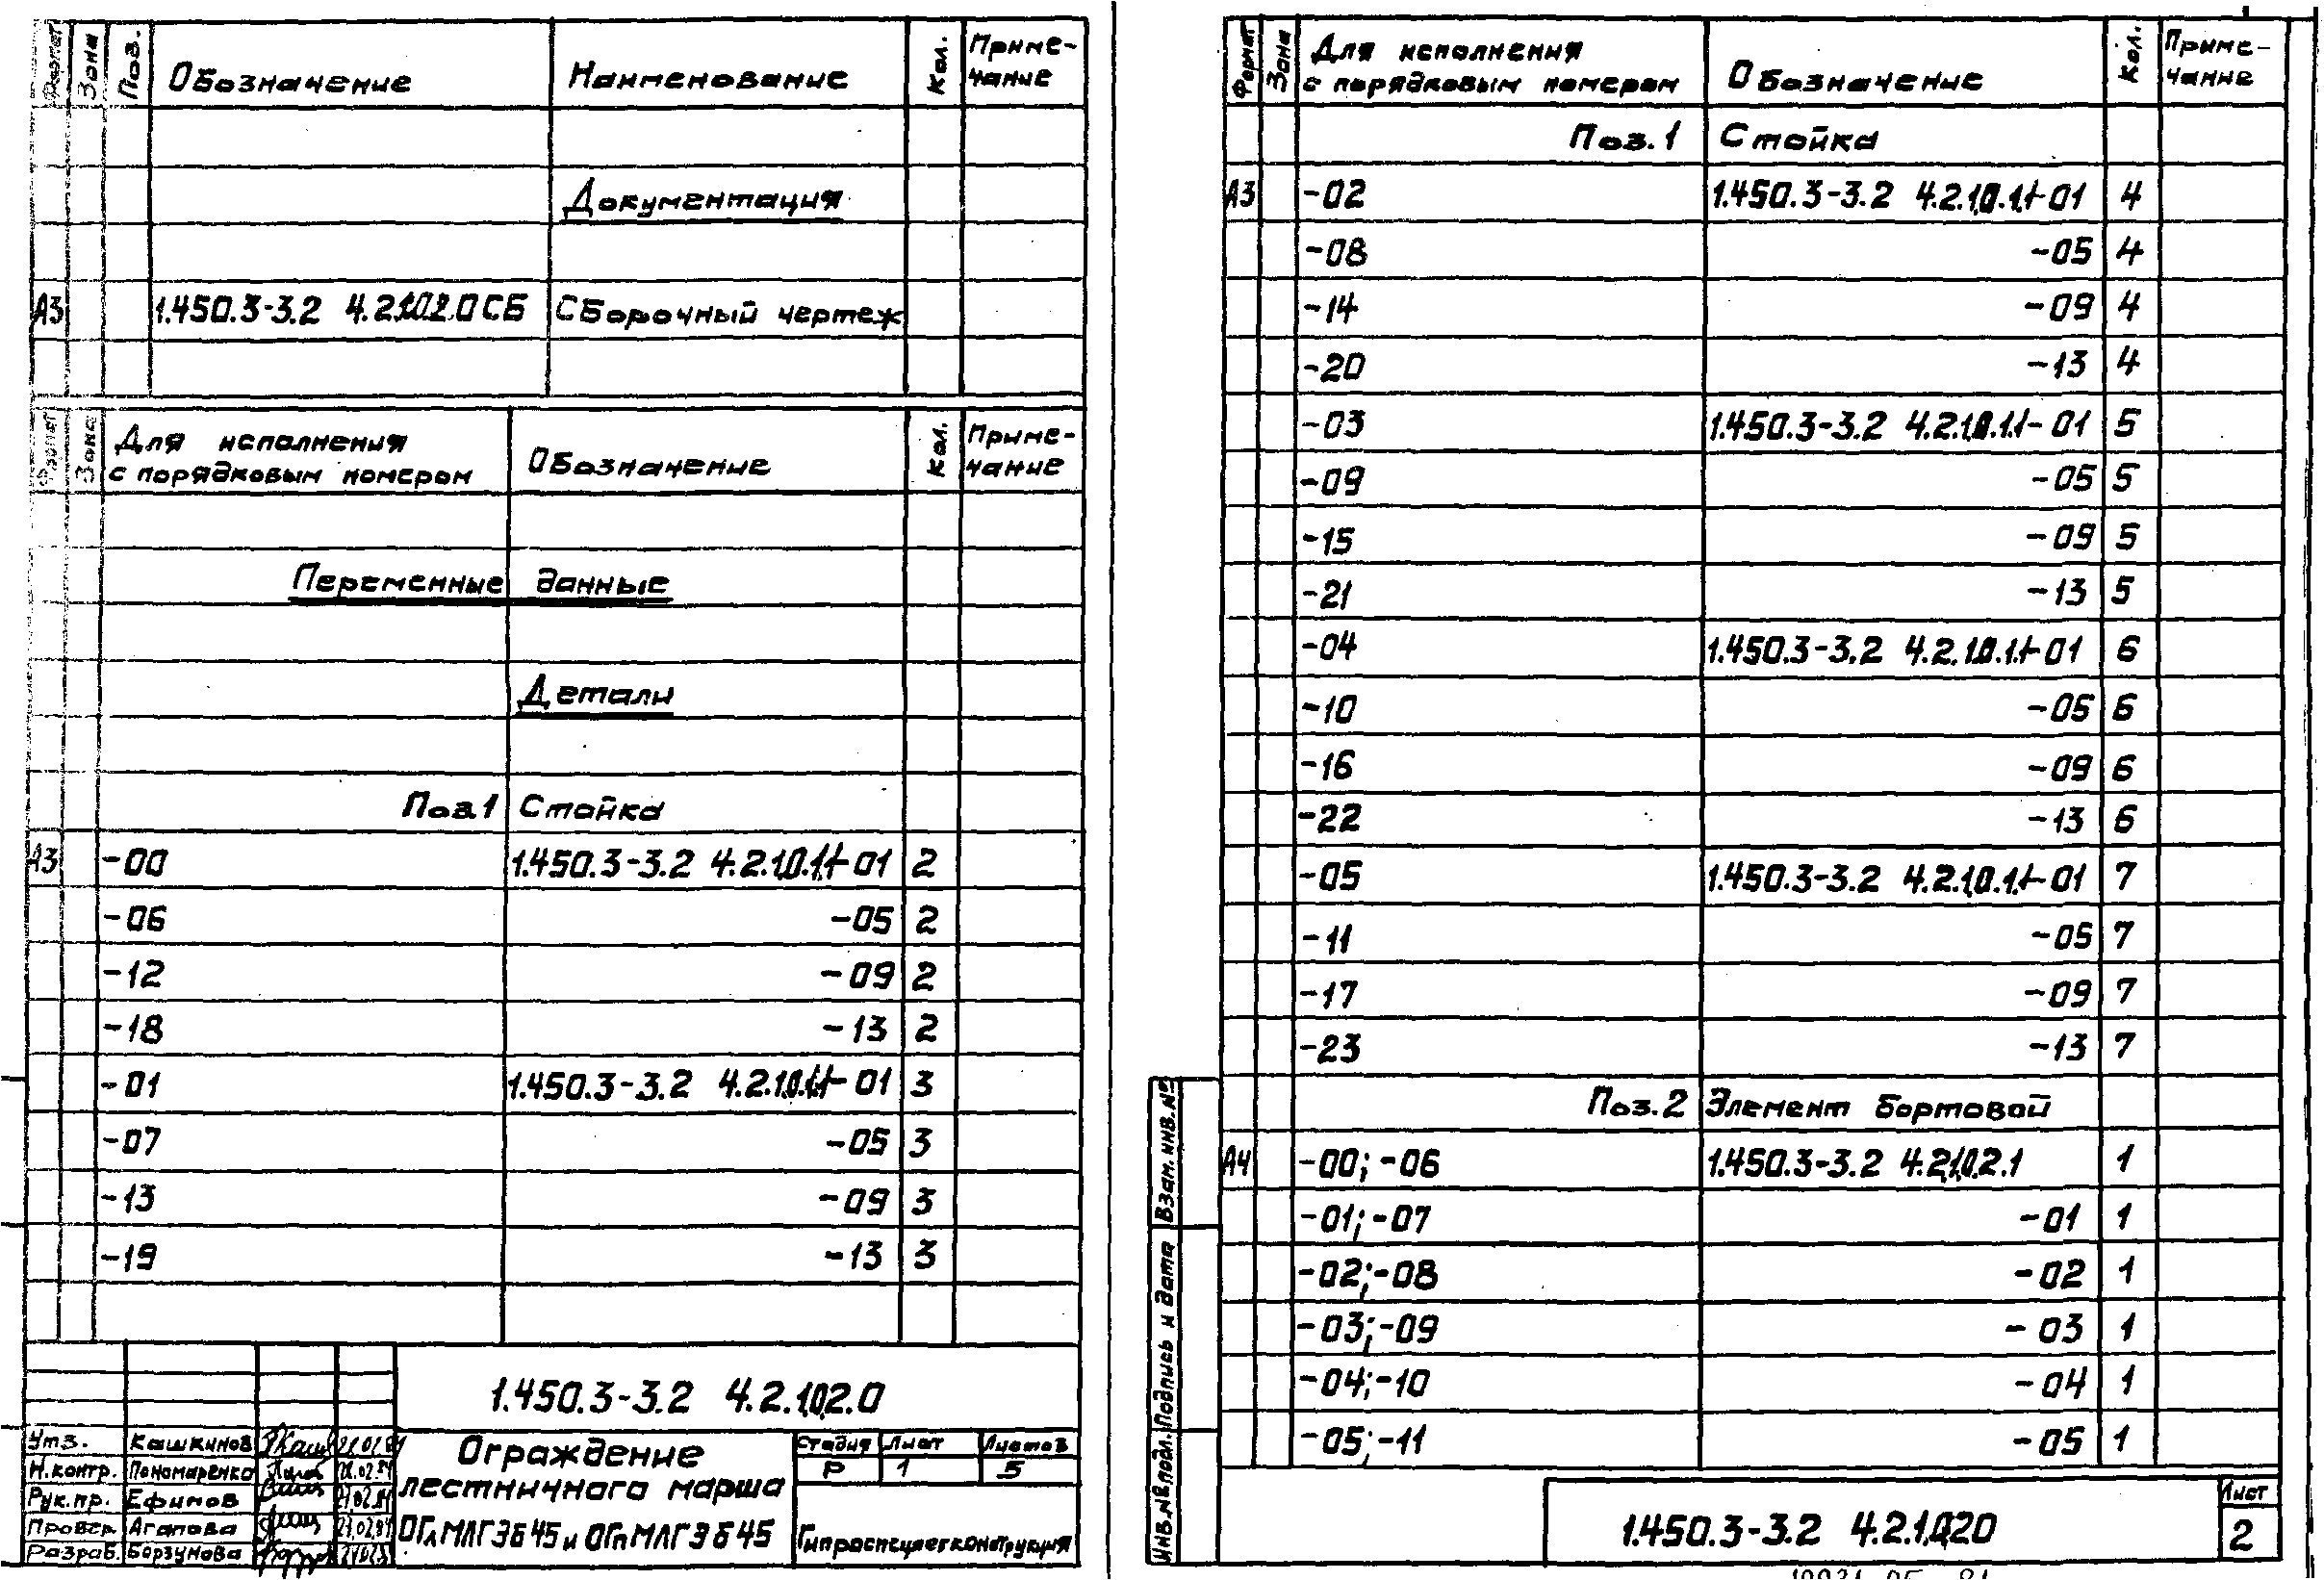 Формат Зона Поз. Обозначение Наименование Кол. Приме-
чание
Документация
А3 1.450.3-3.2 4.2.1.0.2.0 СБ Сборочный чертеж
Формат Зона Для исполнения
с порядковым номером Обозначение Кол. Приме-
чание
Переменные данные
Детали
Поз.1 Стойка
А3 -00 1.450.3-3.2 4.2.1.0.1.1-01 2
-06 -05 2
-12 -09 2
-18 -13 2
-01 1.450.3-3.2 4.2.1.0.1.1-01 3
-07 -05 3
-13 -09 3
-19 -13 3
1.450.3-3.2 4.2.1.0.2.0
Утв. Кашкинов 21.02.84
Н.контр. Пономаренко 21.02.84
Рук.пр. Ефимов 21.02.84
Провер. Агапова 21.02.84
Разраб. Борзунова
Ограждение
лестничного марша
ОГлМЛГЭб45 и ОГпМЛГЭб45
Стадия Лист Листов
Р 1 5
Гипроспецлегконструкция
Формат Зона Для исполнения
с порядковым номером Обозначение Кол. Приме-
чание
Поз.1 Стойка
А3 -02 1.450.3-3.2 4.2.1.0.1.1-01 4
-08 -05 4
-14 -09 4
-20 -13 4
-03 1.450.3-3.2 4.2.1.0.1.1-01 5
-09 -05 5
-15 -09 5
-21 -13 5
-04 1.450.3-3.2 4.2.1.0.1.1-01 6
-10 -05 6
-16 -09 6
-22 -13 6
-05 1.450.3-3.2 4.2.1.0.1.1-01 7
-11 -05 7
-17 -09 7
-23 -13 7
Поз.2 Элемент бортовой
А4 -00; -06 1.450.3-3.2 4.2.1.0.2.1 1
-01; -07 -01 1
-02; -08 -02 1
-03; -09 -03 1
-04; -10 -04 1
-05; -11 -05 1
Инв.№ подл. Подпись и дата Взам.инв.№
1.450.3-3.2 4.2.1.0.2.0
Лист
2